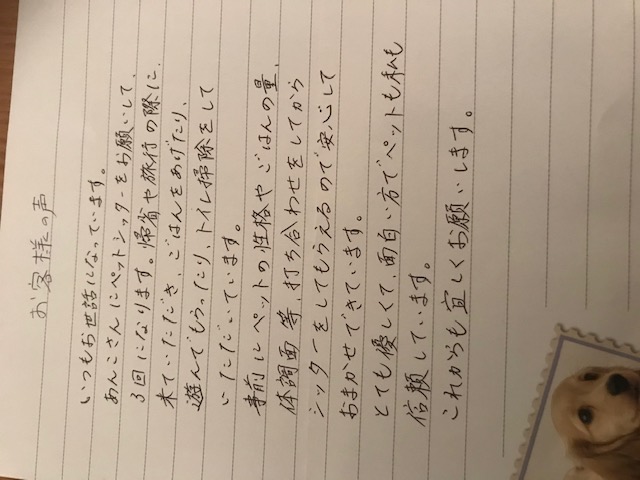 お客様の声
いつもお世話になっています。
あんこさんにペットシッターをお願いして、
3回になります。帰省や旅行の際に
来ていただき、ごはんをあげたり、
遊んでもらったり、トイレ掃除をして
いただいています。
事前にペットの性格やごはんの量、
体調面等、打ち合わせをしてから
シッターをしてもらえるので安心して
おまかせできています。
とても優しくて、面白い方でペットも私も
信頼しています。
これからも宜しくお願いします。